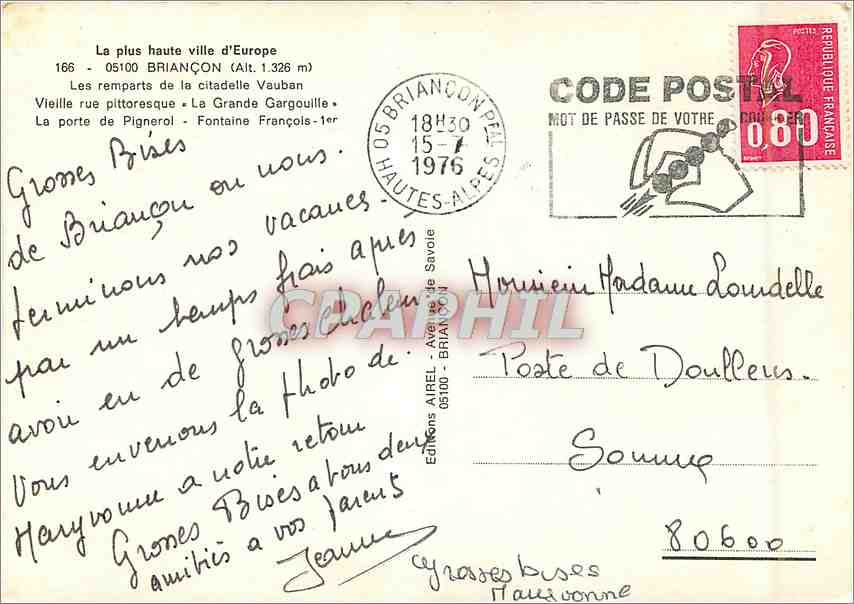 La plus haute ville d'Europe
166 - 05100 BRIANÇON (Alt. 1.326 m)
Les remparts de la citadelle Vauban
Vieille rue pittoresque « La Grande Gargouille »
La porte de Pignerol - Fontaine François-1er
Grosses Bises
de Briançon ou nous.
terminons nos vacances.
par un temps frais apres
avoir eu de grosses chaleurs
Vous enverrons la photo de.
Maryvonne a notre retour
Grosses Bises a tous deux
amitiés a vos parents
Jeanne
Grosses bises
Maryvonne
05 BRIANÇON Pᴾᴬᴸ
18H30
15-7
1976
HAUTES-ALPES
CODE POSTAL
MOT DE PASSE DE VOTRE COURRIER
POSTES
REPUBLIQUE FRANÇAISE
0,80
Editions AIREL - Avenue de Savoie
05100 - BRIANÇON
CPAPHIL
Monsieur Madame Lourdelle
Poste de Doullens.
Somme
80600